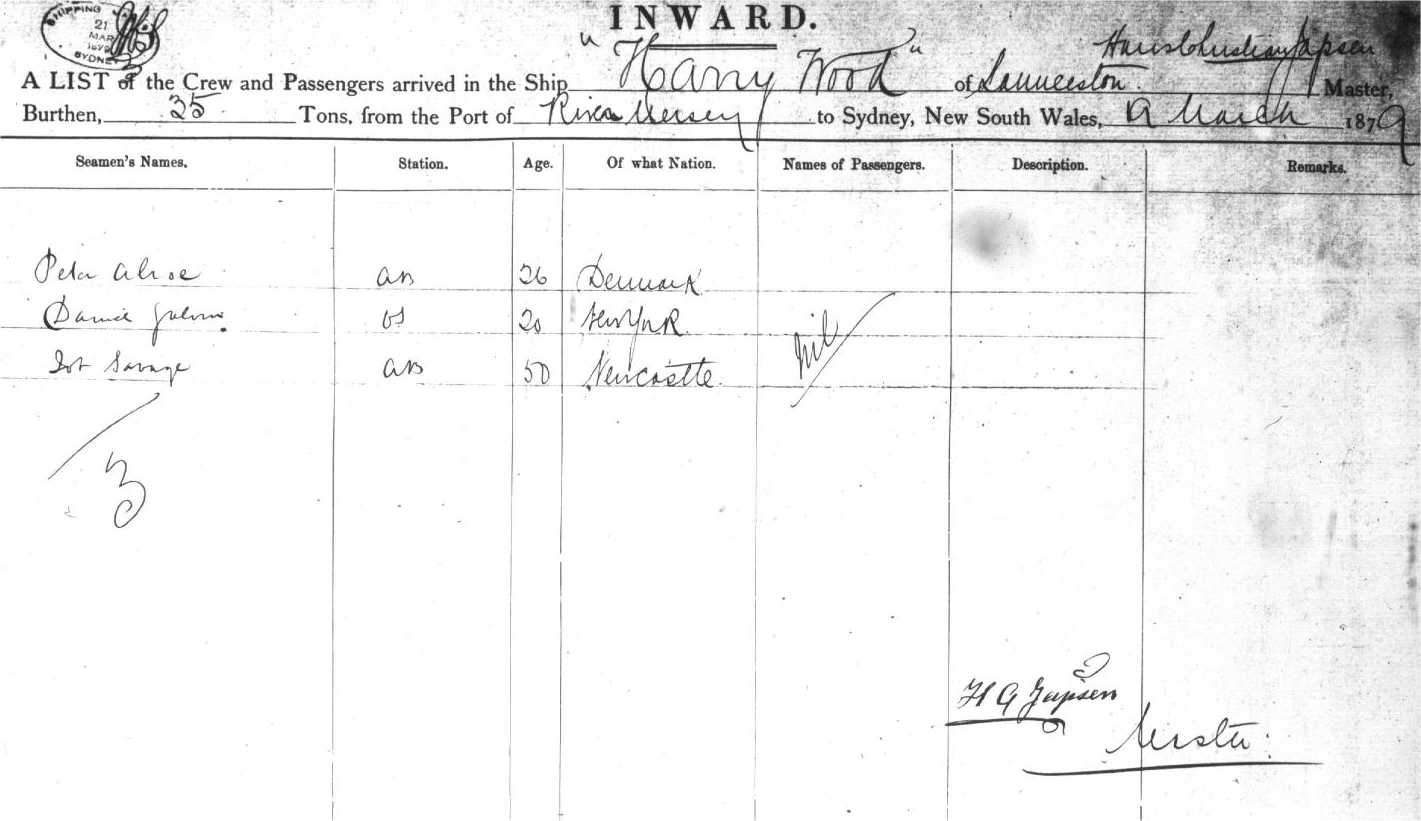 SHIPPING
21
MAR
1879
SYDNEY
INWARD.
Hans Christian Japsen
A LIST of the Crew and Passengers arrived in the Ship "Harry Wood" of Launceston. Master,
Burthen, 35 Tons, from the Port of River Mersey to Sydney, New South Wales, 19 March 1879
Seamen's Names. Station. Age. Of what Nation. Names of Passengers. Description. Remarks.
Peter AB 26 Denmark
OS 20 New York
Savage AB 50 Newcastle
Nil
3
Japsen